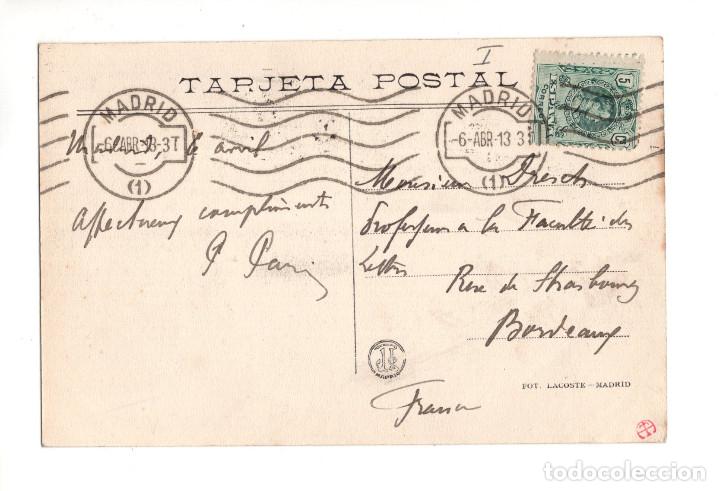 I
TARJETA POSTAL
MADRID
-6-ABR-13-3T
(1)
MADRID
-6-ABR-13 3
(1)
5 Cs
ESPAÑA
CORREOS
Madrid, 6 avril
Affectueux compliments
P Paris
Monsieur Dresch
Professeur a la Faculté des
Lettres
Rue de Strasbourg
Bordeaux
France
MADRID
FOT. LACOSTE—MADRID
todocoleccion.net